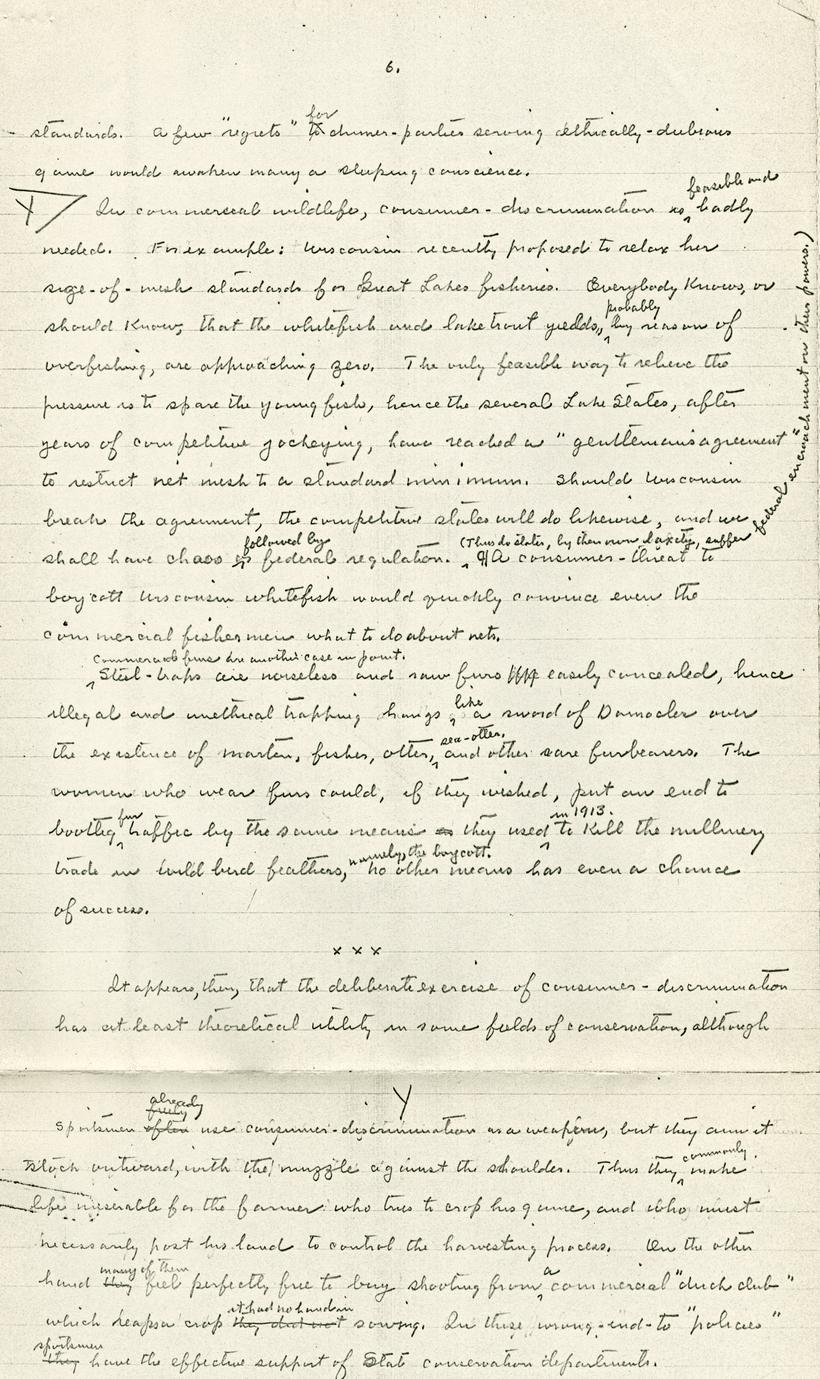 6.
standards. A few "regrets" for to dinner-parties serving ethically-dubious
game would awaken many a sleeping conscience.
Y In commercial wildlife, consumer-discrimination is feasible and badly
needed. For example: Wisconsin recently proposed to relax her
size-of-mesh standards for Great Lakes fisheries. Everybody knows, or
should know, that the whitefish and lake trout yields, probably by reason of
overfishing, are approaching zero. The only feasible way to relieve the
pressure is to spare the young fish, hence the several Lake States, after
years of competitive jockeying, have reached a "gentlemans agreement"
to restrict net mesh to a standard minimum. Should Wisconsin
break the agreement, the competitive states will do likewise, and we
shall have chaos followed by federal regulation. (Thus do states, by their own laxity, suffer federal encroachment on their powers.) A consumer-threat to
boycott Wisconsin whitefish would quickly convince even the
commercial fishermen what to do about nets.
Commercial furs are another case in point.
Steel-traps are noiseless and raw furs easily concealed, hence
illegal and unethical trapping hangs like a sword of Damocles over
the existence of marten, fisher, otter, sea-otter, and other rare furbearers. The
women who wear furs could, if they wished, put an end to
bootleg fur traffic by the same means as they used in 1913. to kill the millinery
trade in wild bird feathers, namely, the boycott. no other means has even a chance
of success.
x x x
It appears, then, that the deliberate exercise of consumer-discrimination
has at least theoretical utility in some fields of conservation, although
Y
sportsmen already freely often use consumer-discrimination as a weapon, but they aim it
stock outward, with the muzzle against the shoulder. Thus they commonly make
life miserable for the farmer who tries to crop his game, and who must
necessarily post his land to control the harvesting process. On the other
hand many of them they feel perfectly free to buy shooting from a commercial "duck club"
which reaps a crop it had no hand in they did not sowing. In these wrong-end-to "policies"
sportsmen they have the effective support of State conservation departments.